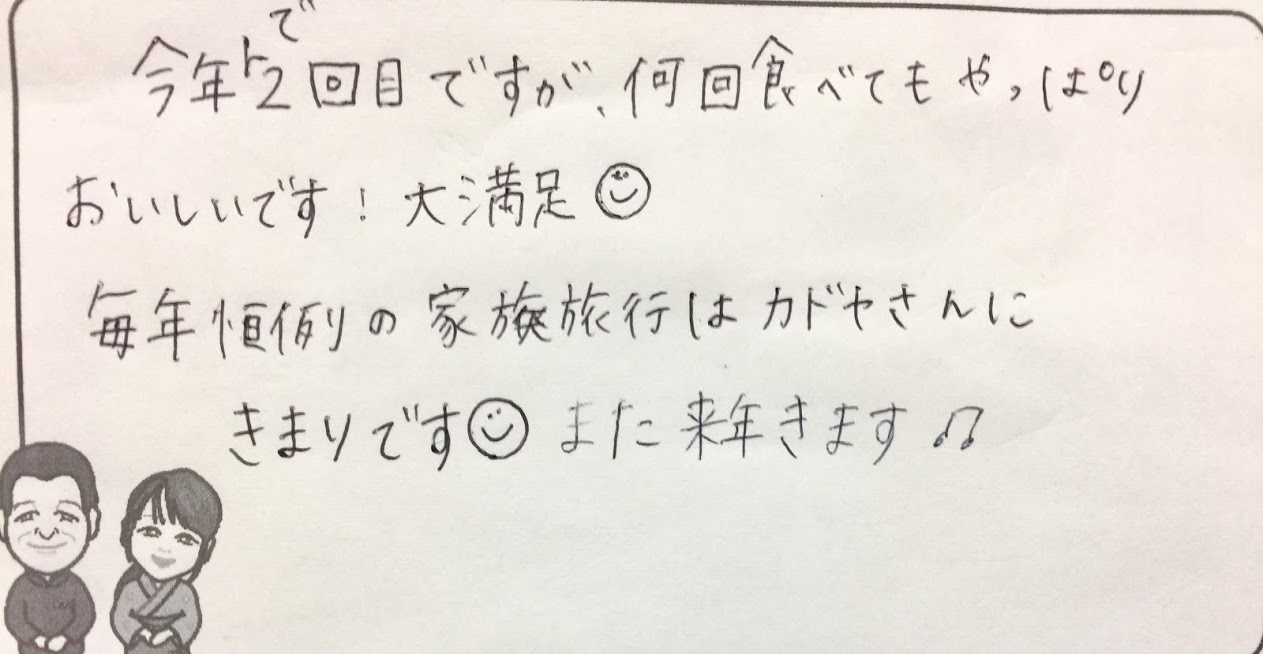 今年で2回目ですが、何回食べてもやっぱり
おいしいです！大満足
毎年恒例の家族旅行はカドヤさんに
きまりです また来年きます♫